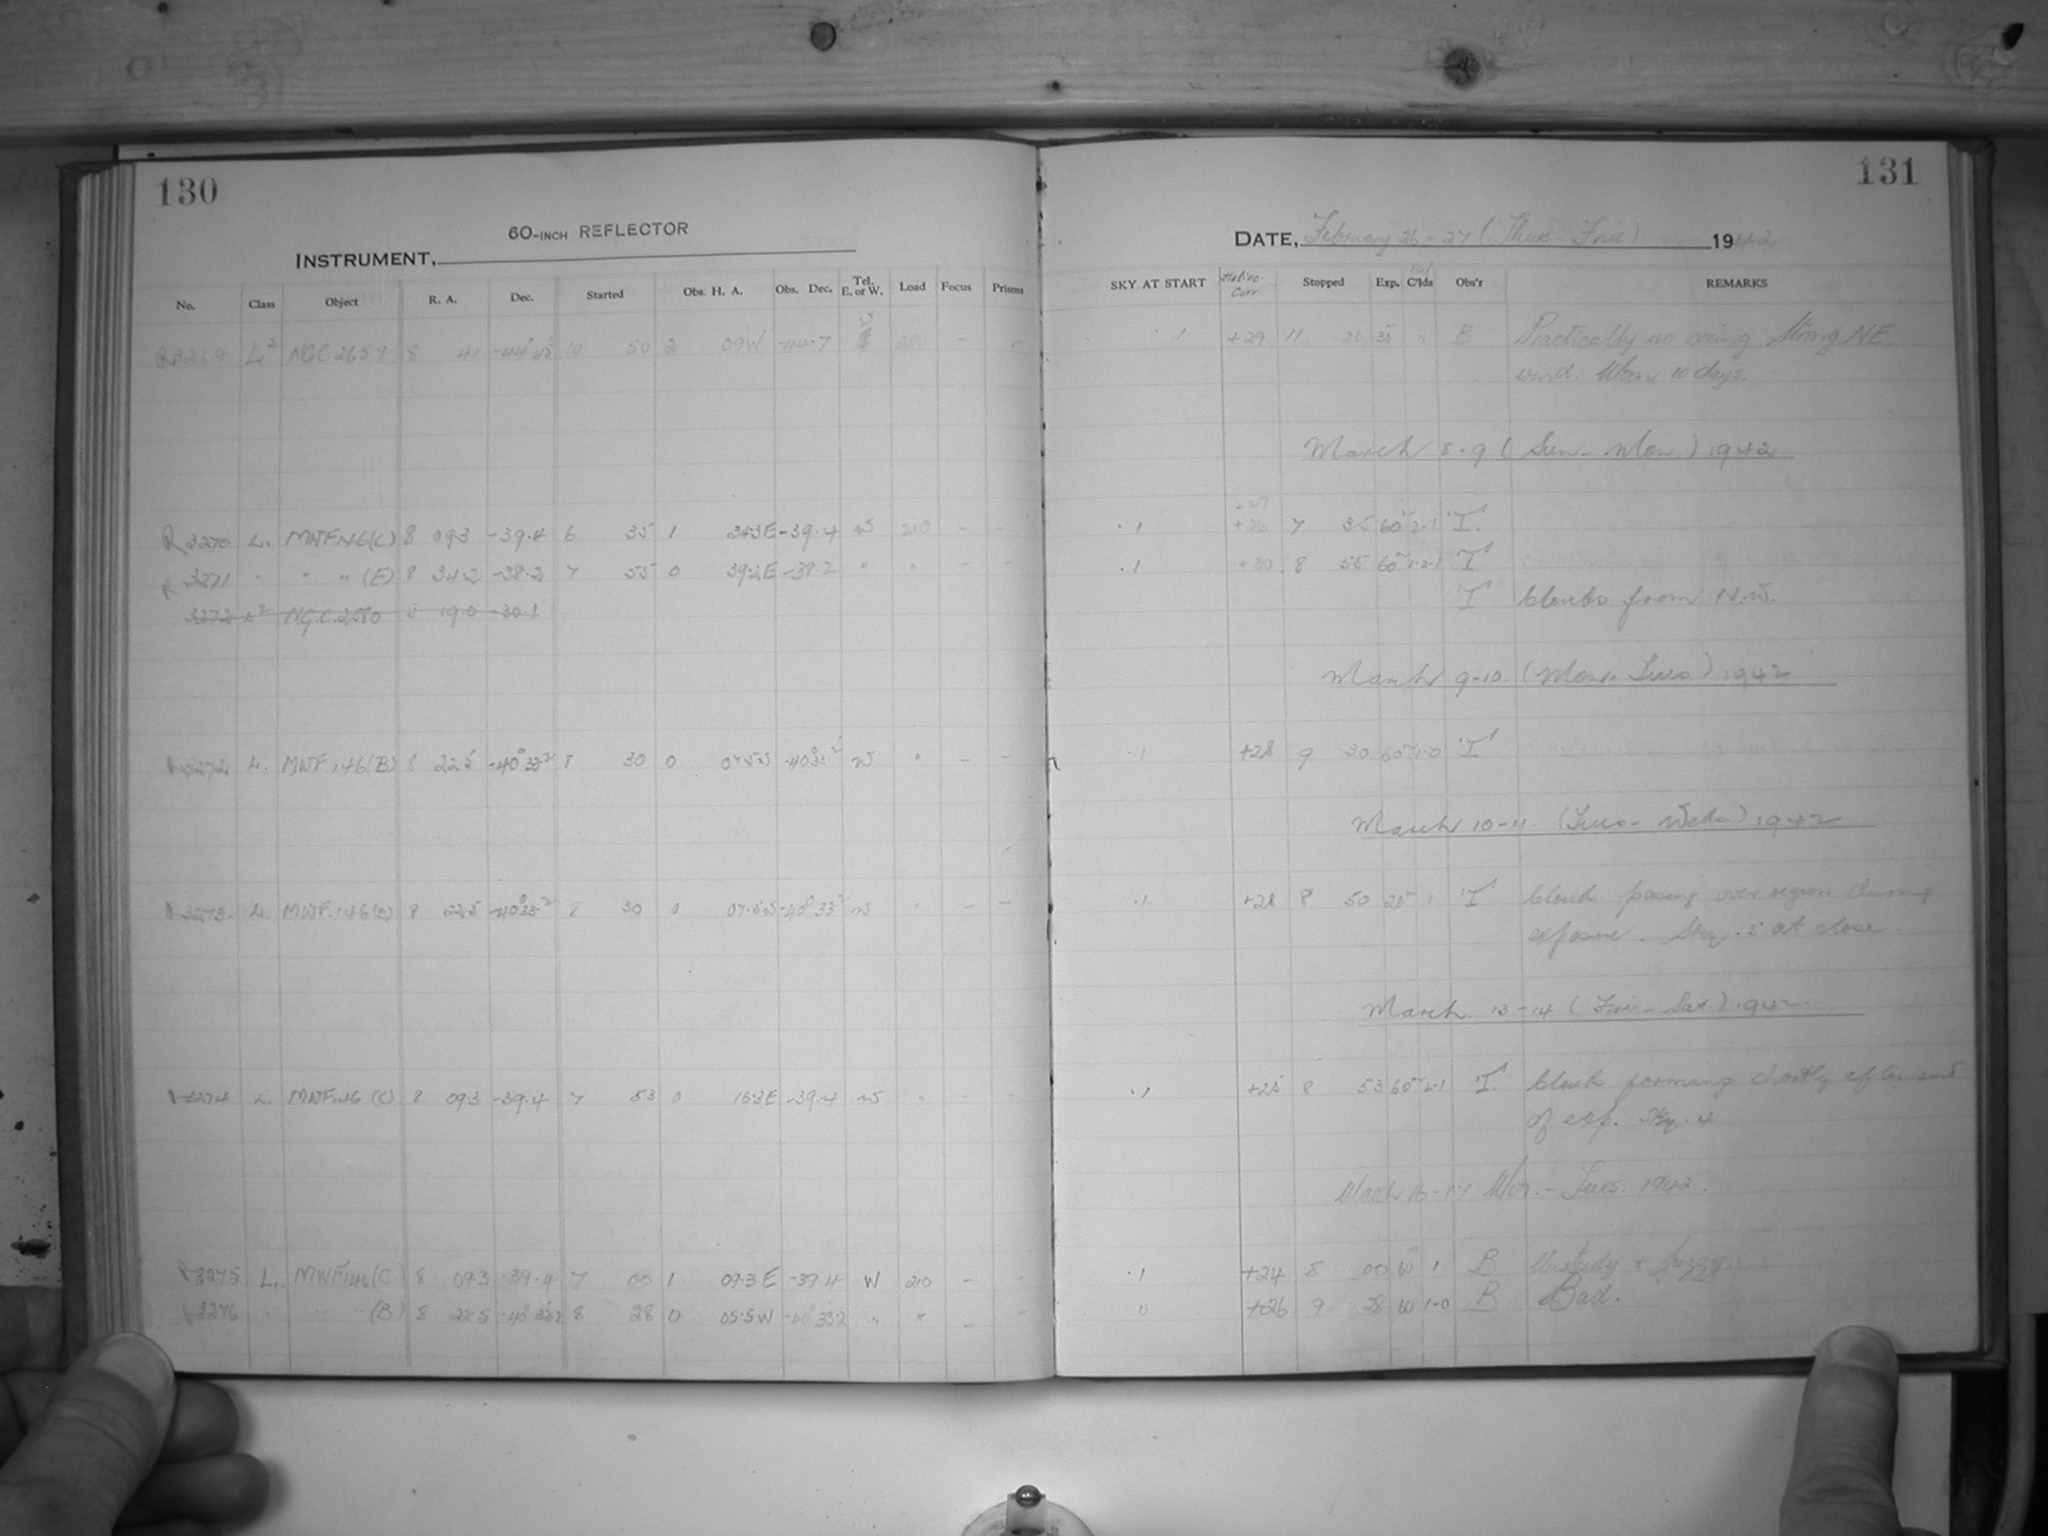 130
INSTRUMENT, 60-INCH REFLECTOR
No. Class Object R. A. Dec. Started Obs. H. A. Obs. Dec. Tel. E. or W. Load Focus Prisms
R3269 L² NGC 2659 8 41 -44°45 10 50 2 09W -44.7 W 200 - -
R3270 L. MWF146(C) 8 09.3 -39.4 6 35 1 34.3E -39.4 W 210 - -
R3271 " " " (E) 8 34.2 -38.2 7 55 0 39.2E -38.2 " " - -
3272 L² N.G.C.2580 8 19.0 -30.1
R3272 L. MWF.146(B) 8 22.5 -40°33.2 8 30 0 07.5W -40°33.2 W " - -
R3273. L. MWF.146(B) 8 22.5 -40°33.2 8 30 0 07.5W -40°33.2 W " - -
R3274 L. MWF.146 (C) 8 09.3 -39.4 7 53 0 16.3E -39.4 W " - -
R3275 L. MWF146(C) 8 09.3 -39.4 7 00 1 09.3E -39.4 W 210 - -
R3276 " " " (B) 8 22.5 -40°33.2 8 28 0 05.5W -40°33.2 " " - -
131
DATE, February 26-27 (Thur. Frid) 1942
SKY AT START Helioc. Corr. Stopped Exp. C'lds Obs'r REMARKS
.1 +29 11 20 35 B Practically no seeing Strong NE
wind. Moon 10 days.
March 8-9 (Sun-Mon.) 1942
+27
.1 +26 7 35 60 2-1 T.
.1 +30 8 55 60 1-2-1 T
T Clouds from N.W.
March 9-10. (Mon-Tues) 1942
.1 +28 9 30 60 1-0 T
March 10-11. (Tues-Weds) 1942
.1 +28 8 50 20 1 T Cloud passing over region during
exposure. Sky .5 at close.
March. 13-14 (Fri-Sat.) 1942.
.1 +25 8 53 60 2-1 T. Clouds forming shortly after end
of exp. Sky .4
March 16-17 Mon.-Tues. 1942.
.1 +24 8 00 60 1 B Unsteady + fuzzy
0 +26 9 28 60 1-0 B Bad.